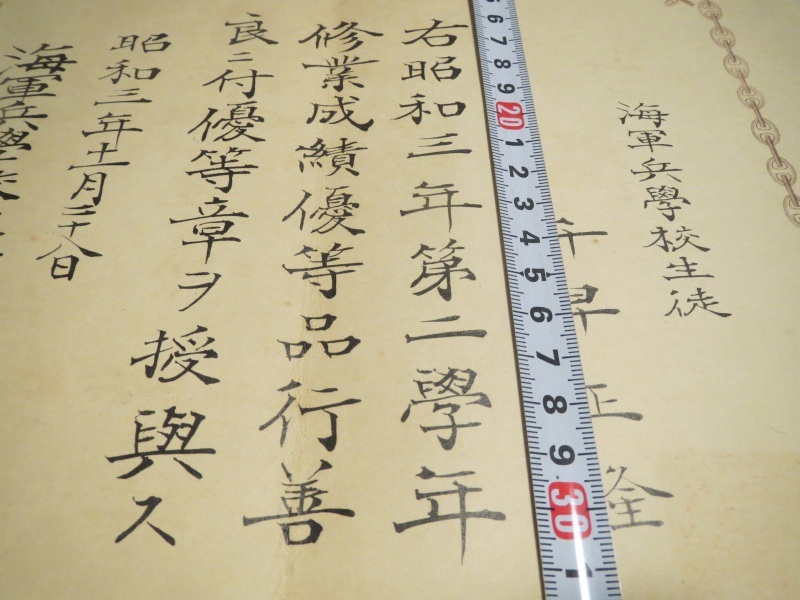 海軍兵學校生徒
6 7 8 9 20 1 2 3 4 5 6 7 8 9 30 1
右昭和三年第二學年
修業成績優等品行善
良ニ付優等章ヲ授與ス
昭和三年十一月二十八日
海軍兵學校